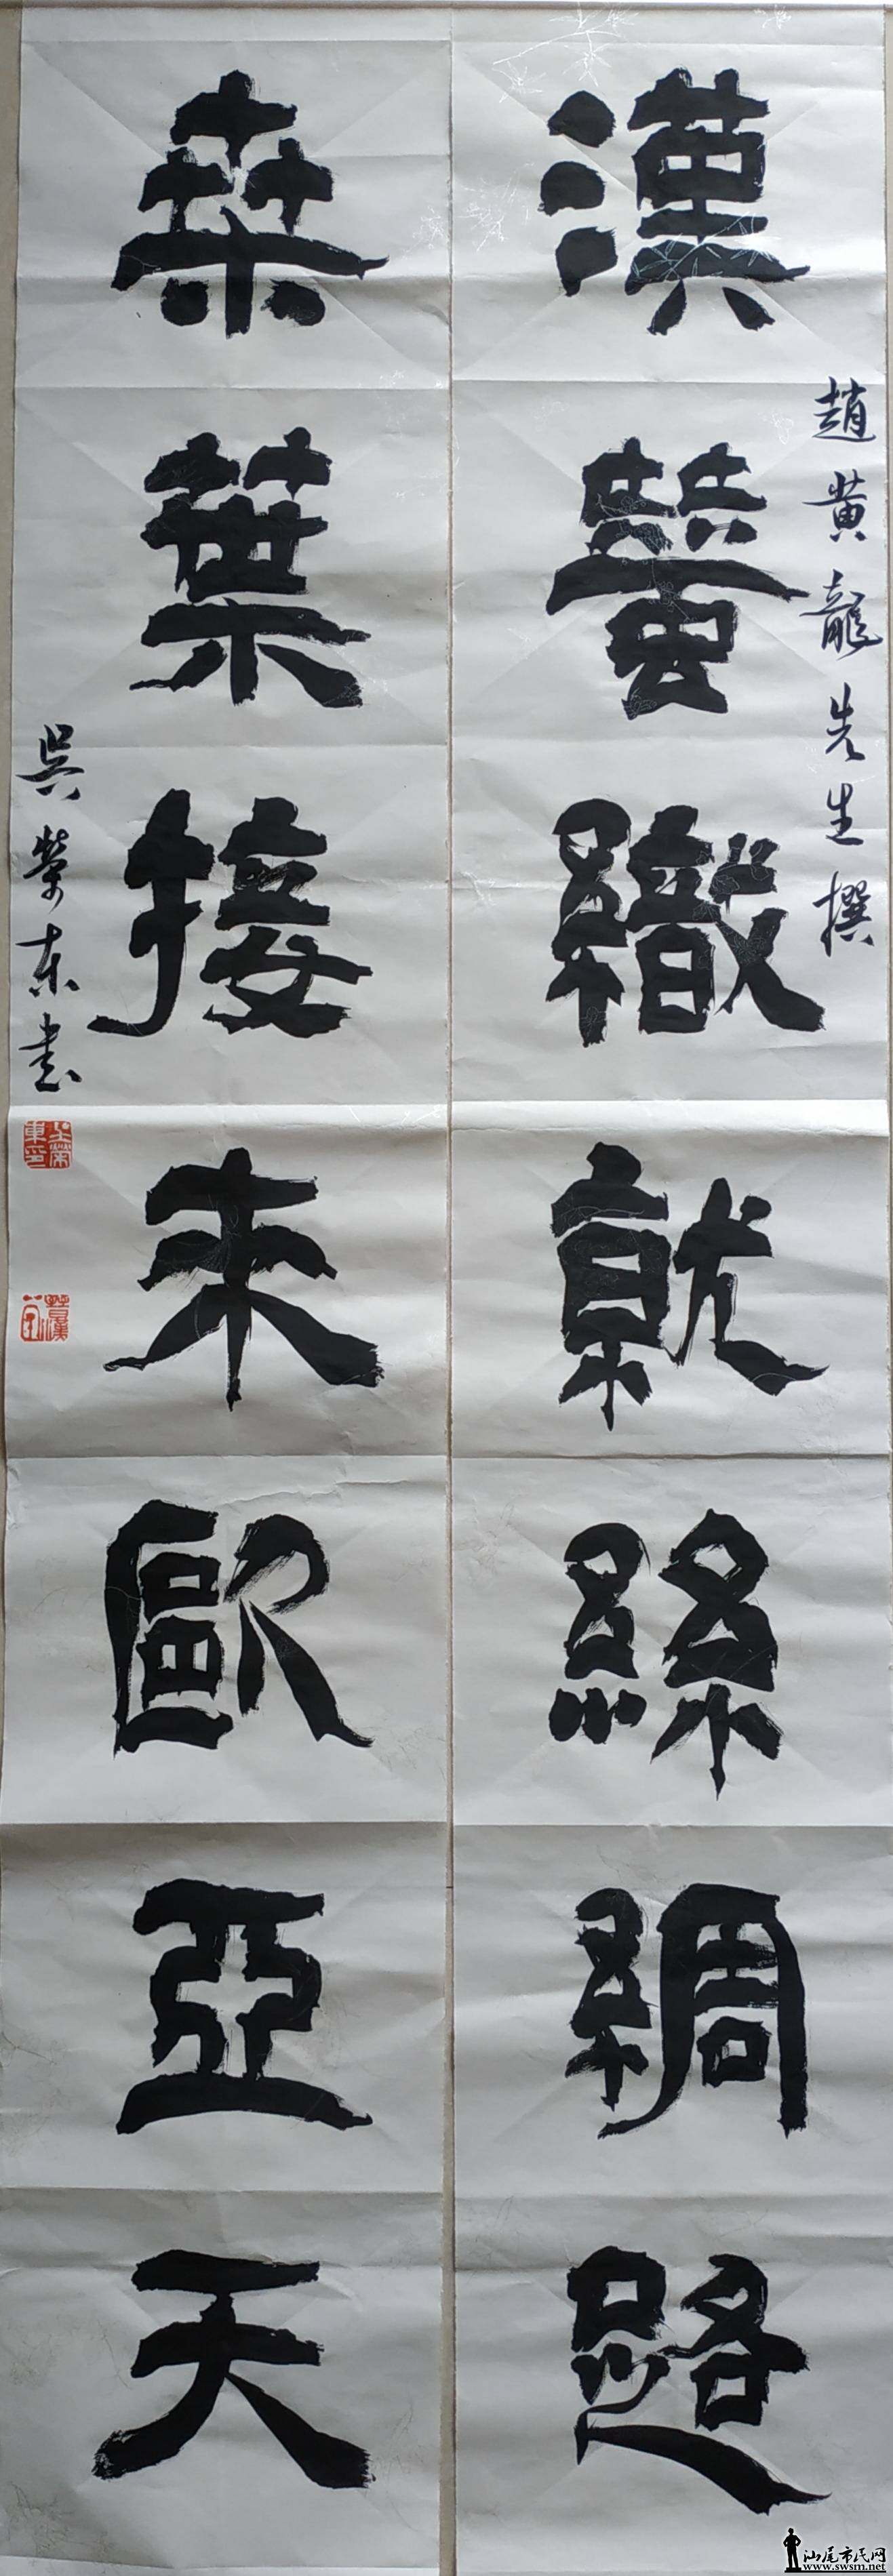 漢蠶織就絲綢路
趙黄龍先生撰
桒葉接来歐亞天
吴榮东書
汕尾市民网
www.swsm.net